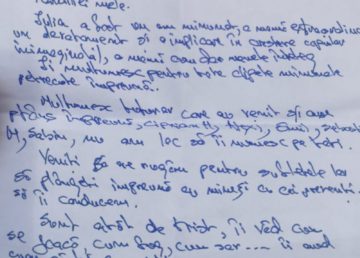 familiei mele.
Iulia a fost un om minunat, o mamă extraordinară
un devotament și o implicare în creștere copiilor
inimaginabil, o mamă cum doar
Îi mulțumesc pentru toate clipele minunate
petrecute împreună.
Mulțumesc tuturor care au venit și au
plâns împreună,
M, Sabin, nu am loc să îi numesc pe toți.
Veniți să ne rugăm pentru sufletele lor
să plângeți împreună cu mine și cu cei prezenți
să îi conducem.
Sunt atât de trist, îi văd cum
se joacă, cum cum îi aud